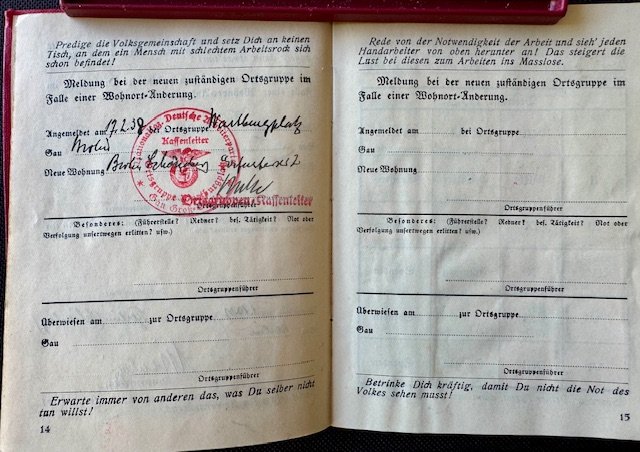 Predige die Volksgemeinschaft und setz Dich an keinen
Tisch, an dem ein Mensch mit schlechtem Arbeitsrock sich
schon befindet!
Meldung bei der neuen zuständigen Ortsgruppe im
Falle einer Wohnort-Änderung.
Angemeldet am bei Ortsgruppe Wartburgplatz
Gau Berlin
Neue Wohnung Berlin Schöneberg
Nationalsoz. Deutsche Arbeiterpartei
Kassenleiter
Ortsgruppe Wartburgplatz
Gau Groß-Berlin
Ortsgruppen-Kassenleiter
Besonderes: (Führerstelle? Redner? bes. Tätigkeit? Not oder
Verfolgung unsertwegen erlitten? usw.)
Ortsgruppenführer
Überwiesen am zur Ortsgruppe
Gau
Ortsgruppenführer
Erwarte immer von anderen das, was Du selber nicht
tun willst!
14
Rede von der Notwendigkeit der Arbeit und sieh' jeden
Handarbeiter von oben herunter an! Das steigert die
Lust bei diesen zum Arbeiten ins Masslose.
Meldung bei der neuen zuständigen Ortsgruppe im
Falle einer Wohnort-Änderung.
Angemeldet am bei Ortsgruppe
Gau
Neue Wohnung
Ortsgruppenführer
Besonderes: (Führerstelle? Redner? bes. Tätigkeit? Not oder
Verfolgung unsertwegen erlitten? usw.)
Ortsgruppenführer
Überwiesen am zur Ortsgruppe
Gau
Ortsgruppenführer
Betrinke Dich kräftig, damit Du nicht die Not des
Volkes sehen musst!
15